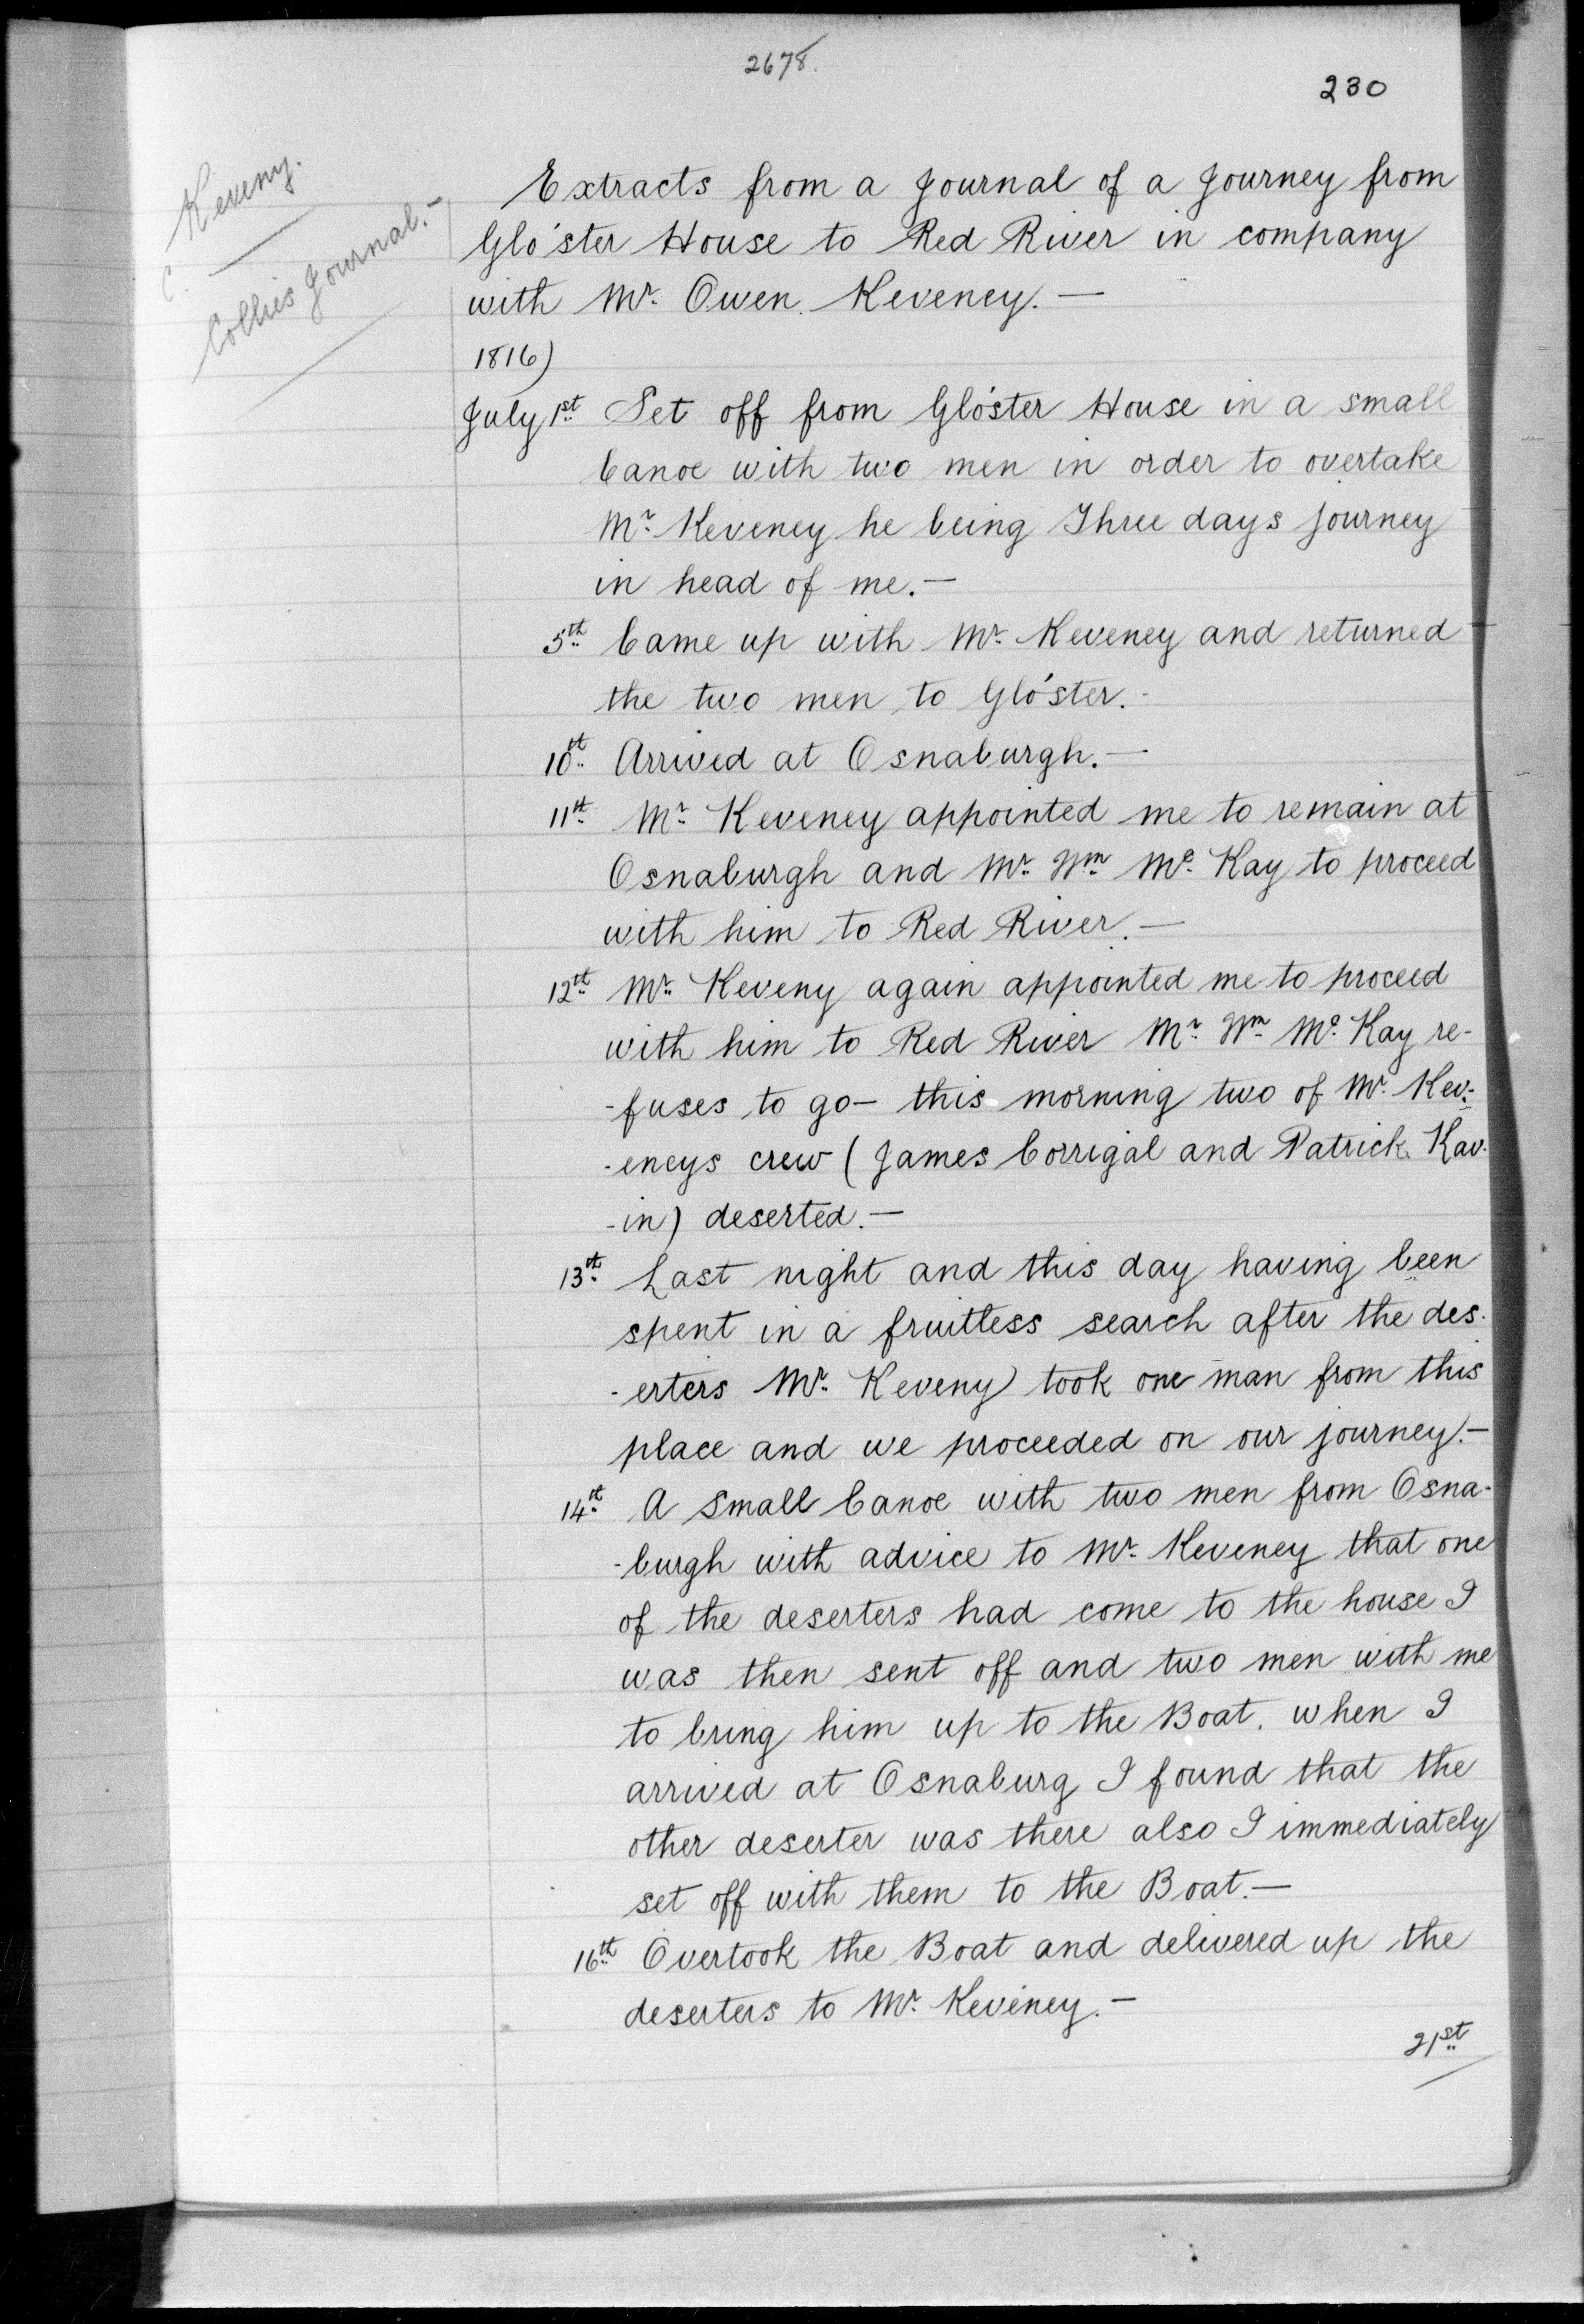 2678.
230
Keveny.
C.
Collie's Journal.-
Extracts from a Journal of a Journey from
Glo'ster House to Red River in company
with Mr. Owen Keveney.—
1816)
July 1st Set off from Glo'ster House in a small
Canoe with two men in order to overtake
Mr. Keveney he being Three days journey
in head of me.—
5th Came up with Mr. Keveney and returned
the two men to Glo'ster.-
10th Arrived at Osnaburgh.—
11th Mr. Keveney appointed me to remain at
Osnaburgh and Mr. Wm. Mc. Kay to proceed
with him to Red River.—
12th Mr. Keveny again appointed me to proceed
with him to Red River Mr. Wm. Mc. Kay re-
-fuses to go— this morning two of Mr. Kev-
-eneys crew (James Corrigal and Patrick Kav-
-in) deserted.—
13th Last night and this day having been
spent in a fruitless search after the des-
-erters Mr. Keveny took one man from this
place and we proceeded on our journey.—
14th A small Canoe with two men from Osna-
-burgh with advice to Mr. Keveney that one
of the deserters had come to the house I
was then sent off and two men with me
to bring him up to the Boat. when I
arrived at Osnaburg I found that the
other deserter was there also I immediately
set off with them to the Boat.—
16th Overtook the Boat and delivered up the
deserters to Mr. Keveney.—
21st